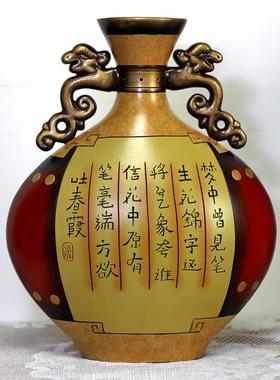 梦中曾见笔
生花錦字还
将气象夸谁
信花中原有
笔毫端方欲
吐春霞